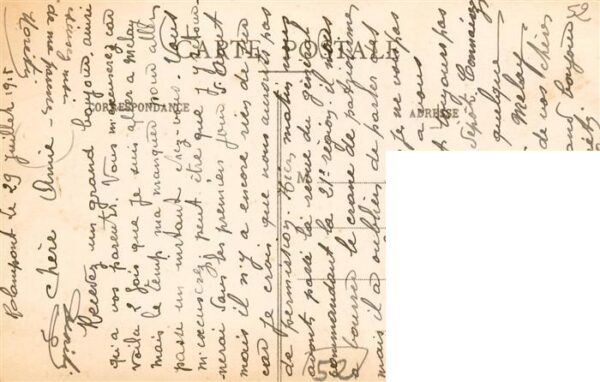 CARTE POSTALE
CORRESPONDANCE
ADRESSE
le 29 Juillet 1915
Chère Amie
Recevez un grand bonjour ainsi
qu'a vos parents. Vous m'excuserez car
voila 2 fois que je suis aller a Melay
mais le temp ma manquer pour aller
passé un instant chez-vous. Vous
m'excuserez peut être que j'y
nerai dans les premiers jour d'Aout
mais il n'y a encore rien de sur
car je croi que nous aurons pas
de permission. Hier matin nous
avons passé la revue du général
commandant la 21e région. il nous
a bourrer le crane de patriotisme
mais il a oublier de parler des
je ne vois pas
a nous
pas
Dépôt. Connaissez
quelque
Melay
de vos chères
grand bonjour
52